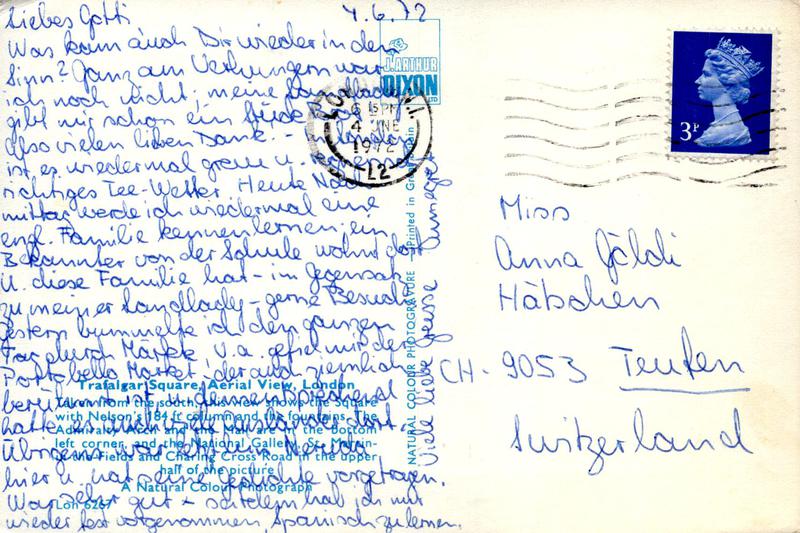 Liebes Gotti 4.6.72
Was kam auch Dir wieder in den
Sinn? Ganz am Verhungern war
ich noch nicht, meine Landlady
gibt mir schon ein
also vielen lieben Dank. - In London
ist es wiedermal grau u.
richtiges Tee-Wetter. Heute Nach-
mittag werde ich wiedermal eine
engl. Familie kennenlernen, ein
Bekannter von der Schule wohnt dort
u. diese Familie hat - im Gegensatz
zu meiner Landlady - gerne Besuch.
Gestern bummelte ich den ganzen
Tag durch Märkte. U.a. gefiel mir der
Portobello Market, der auch ziemlich
berühmt ist u. dementsprechend
hatte es auch viele Ausländer dort.
Übrigens war Neruda
hier u. hat seine Gedichte vorgetragen.
War sehr gut - seitdem hab ich mir
wieder fest vorgenommen, Spanisch zu lernen.
Viele liebe Grüsse
Annegret
J. ARTHUR
DIXON
LTD
NATURAL COLOUR PHOTOGRAVURE — Printed in Great Britain
Trafalgar Square, Aerial View, London
Taken from the south, this view shows the Square
with Nelson's 184 ft column and the fountains. The
Admiralty Arch and the Mall are in the bottom
left corner, and the National Gallery, St. Martin-
in-the-Fields and Charing Cross Road in the upper
half of the picture
A Natural Colour Photograph
Lon 6267
LONDON
6 15 PM
4 JNE
1972
L2
3P
Miss
Anna Gäldi
Hätschen
CH - 9053 Teufen
Switzerland